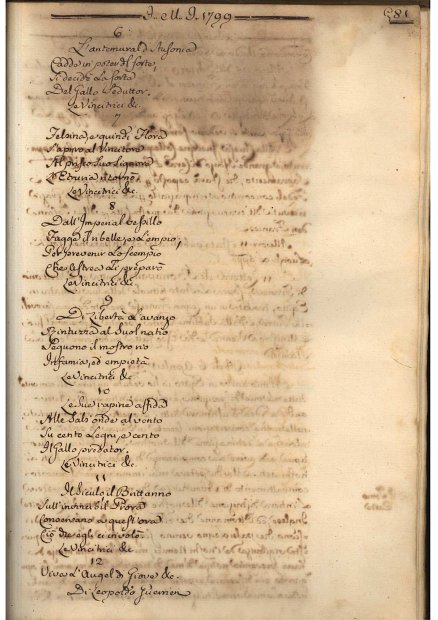 I. M. I. 1799
581
6
L'antemural d'Ausonia
Cadde in poter del forte;
Si decide la sorte
Del Gallo seduttor.
Le Vincitrici &c.
7
Felsina, e quindi Flora
S'apriro al Vincitore
Al pristo suo Signore
L'Etruria ritornò.
Le Vincitrici &c.
8
Dall'Imperial vessillo
Fugge il ribelle, e l'empio;
Per prevenir lo scempio
Che Astrea Le preparò
Le Vincitrici &c.
9
Di Libertà l'avanzo
al Suol natio
Seguono il mostro rio
Infamia, ed empietà
Le Vincitrici &c.
10
Le sue rapine affida
Alle Sals'onde al vento
Su cento Legni, e cento
Il Gallo predator.
Le Vincitrici &c.
11
Il Siculo il Brittanno
Sull' Prora
Conservano a quest'ora
Ciò ch'egli ci involò.
Le Vincitrici &c.
12
Viva L'Augel di Giove &c.
Di Leopoldo